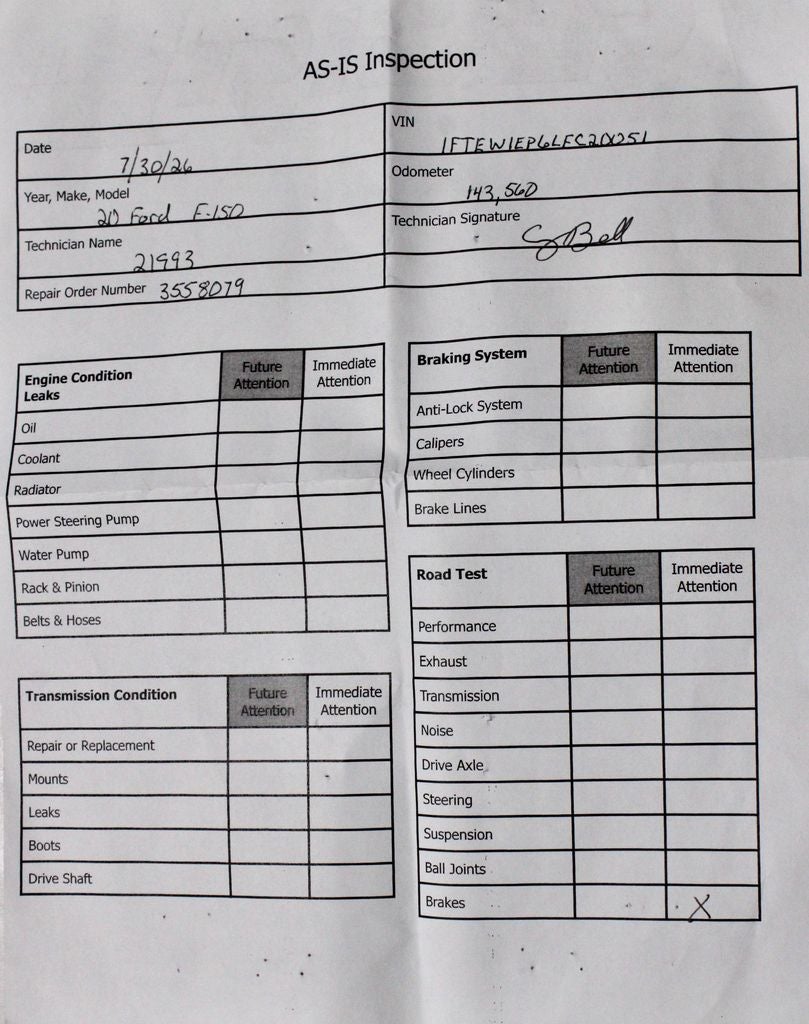 AS-IS Inspection
Date 7/30/26
VIN 1FTEW1EP6LFC20251
Year, Make, Model 20 Ford F-150
Odometer 143,560
Technician Name 21993
Technician Signature Bell
Repair Order Number 3558079
Engine Condition Leaks
Future Attention
Immediate Attention
Oil
Coolant
Radiator
Power Steering Pump
Water Pump
Rack & Pinion
Belts & Hoses
Transmission Condition
Future Attention
Immediate Attention
Repair or Replacement
Mounts
Leaks
Boots
Drive Shaft
Braking System
Future Attention
Immediate Attention
Anti-Lock System
Calipers
Wheel Cylinders
Brake Lines
Road Test
Future Attention
Immediate Attention
Performance
Exhaust
Transmission
Noise
Drive Axle
Steering
Suspension
Ball Joints
Brakes X